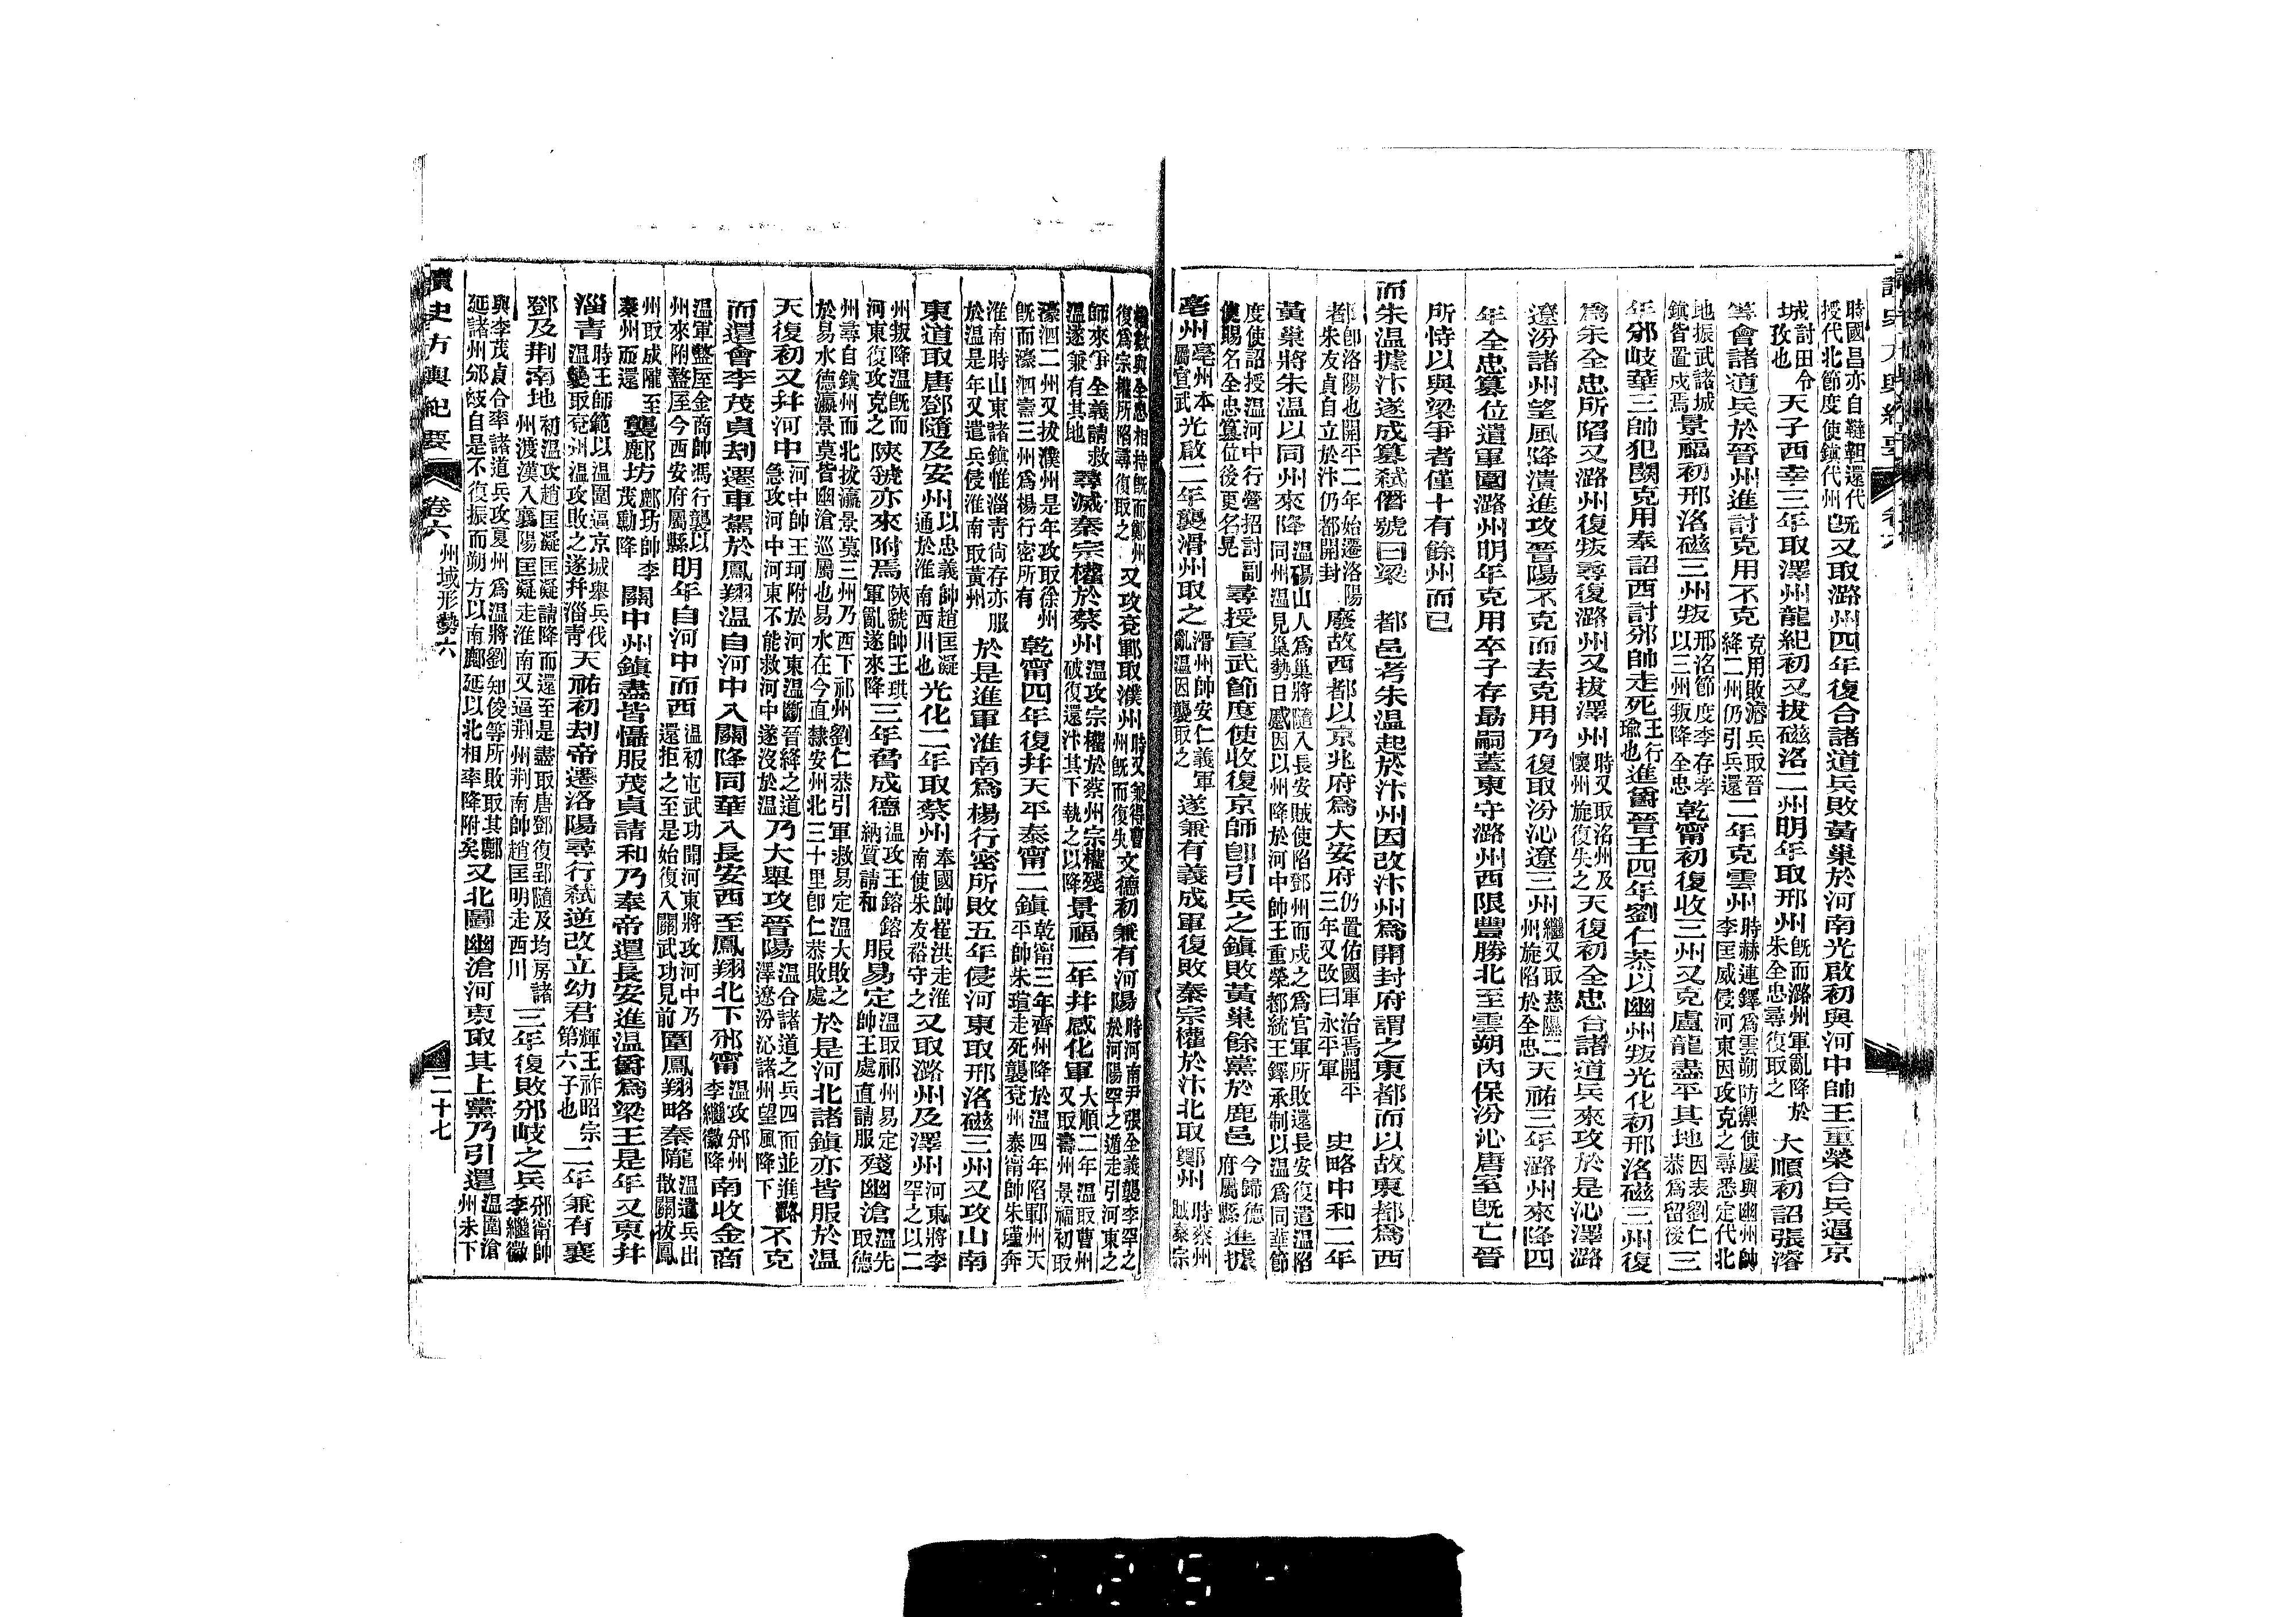 時國昌亦自韃靼還代授代北節度使鎮代州既又取潞州四年復合諸道兵敗黃巢於河南光啟初與河中帥王重榮合兵逼京
城討田令孜也天子西幸三年取澤州龍紀初又拔磁洛二州明年取邢州既而潞州軍亂降於朱全忠尋復取之大順初詔張濬
等會諸道兵於晉州進討克用不克克用敗濬兵取晉絳二州仍引兵還二年克雲州時赫連鐸為雲朔防禦使屢與幽州帥李匡威侵河東因攻克之尋悉定代北
地振武諸城鎮皆置戍焉景福初邢洺磁三州叛邢洺節度李存孝以三州叛降全忠乾甯初復收三州又克盧龍盡平其地因表劉仁恭為留後三
年邠岐華三帥犯闕克用奉詔西討邠帥走死王行瑜也進爵晉王四年劉仁恭以幽州叛光化初邢洺磁三州復
為朱全忠所陷又潞州復叛尋復潞州又拔澤州時又取洺州及懷州旋復失之天復初全忠合諸道兵來攻於是沁澤潞
遼汾諸州望風降潰進攻晉陽不克而去克用乃復取汾沁遼三州繼又取慈隰二州旋陷於全忠天祐三年潞州來降四
年全忠篡位遣軍圍潞州明年克用卒子存勗嗣蓋東守潞州西限豐勝北至雲朔內保汾沁唐室既亡晉
所恃以與梁爭者僅十有餘州而已
而朱溫據汴遂成篡弒僭號曰梁 都邑考朱溫起於汴州因改汴州為開封府謂之東都而以故東都為西
都即洛陽也開平二年始遷洛陽者朱友貞自立於汴仍都開封廢故西都以京兆府為大安府仍置佑國軍治焉開平三年又改曰永平軍 史略中和二年
黃巢將朱溫以同州來降溫碭山人為巢將隨入長安賊使陷鄧州而戍之為官軍所敗還長安復遣溫陷同州溫見巢勢日蹙因以州降於河中帥王重榮都統王鐸承制以溫為同華節
度使詔授溫河中行營招討副使賜名全忠篡位後更名晃尋授宣武節度使收復京師即引兵之鎮敗黃巢餘黨於鹿邑今歸德府屬縣進據
亳州亳州本屬宣武光啟二年襲滑州取之滑州帥安仁義軍亂溫因襲取之遂兼有義成軍復敗秦宗權於汴北取鄭州時蔡州賊秦宗
權欲與全忠相持既而鄭州復為宗權所陷尋復取之又攻兗鄆取濮州時又兼得曹州既而復失文德初兼有河陽時河南尹張全義襲李罕之於河陽罕之遁走引河東之
師來爭全義請救溫遂兼有其地尋滅秦宗權於蔡州溫攻宗權於蔡州宗權殘破復還汴其下執之以降景福二年幷感化軍大順二年溫取曹州又取壽州景福初取
濠泗二州又拔濮州是年攻取徐州既而濠泗壽三州為楊行密所有乾甯四年復幷天平泰甯二鎮乾甯三年齊州降於溫四年陷鄆州天平帥朱瑄走死襲兗州泰甯帥朱瑾奔
淮南時山東諸鎮惟淄青尚存亦服於溫是年又遣兵侵淮南取黃州於是進軍淮南為楊行密所敗五年侵河東取邢洺磁三州又攻山南
東道取唐鄧隨及安州以忠義帥趙匡凝通於淮南西川也光化二年取蔡州奉國帥崔洪走淮南使朱友裕守之又取潞州及澤州河東將李罕之以二
州叛降溫既而河東復攻克之陝虢亦來附焉陝虢帥王珙軍亂遂來降三年脅成德溫攻王鎔鎔納質請和服易定溫取祁州易定帥王處直請服殘幽滄溫先取德
州尋自鎮州而北拔瀛景莫三州乃西下祁州劉仁恭引軍救易定溫大敗之於易水德瀛景莫皆幽滄巡屬也易水在今直隸安州北三十里即仁恭敗處於是河北諸鎮亦皆服於溫
天復初又幷河中河中帥王珂附於河東溫斷晉絳之道急攻河中河東不能救河中遂沒於溫乃大舉攻晉陽溫合諸道之兵四面並進潞澤遼汾沁諸州望風降下不克
而還會李茂貞刦遷車駕於鳳翔溫自河中入關降同華入長安西至鳳翔北下邠甯溫攻邠州李繼徽降南收金商
溫軍盩厔金商帥馮行襲以州來附盩厔今西安府屬縣明年自河中而西溫初屯武功聞河東將攻河中乃還拒之至是始復入關武功見前圍鳳翔略秦隴溫遣兵出散關拔鳳
州取成隴至秦州而還襲鄜坊鄜坊帥李茂勳降關中州鎮盡皆懾服茂貞請和乃奉帝還長安進溫爵為梁王是年又東幷
淄青時王師範以溫圍逼京城舉兵伐溫襲取兗州溫攻敗之遂幷淄青天祐初刦帝遷洛陽尋行弒逆改立幼君輝王祚昭宗第六子也二年兼有襄
鄧及荆南地初溫攻趙匡凝匡凝請降而還至是盡取唐鄧復郢隨及均房諸州渡漢入襄陽匡凝走淮南又逼荆州荆南帥趙匡明走西川三年復敗邠岐之兵邠甯帥李繼徽
與李茂貞合率諸道兵攻夏州為溫將劉知俊等所敗取其鄜延諸州邠岐自是不復振而朔方以南鄜延以北相率降附矣又北圖幽滄河東取其上黨乃引還溫圍滄州未下
讀史方輿紀要 卷六 州域形勢六 二十七